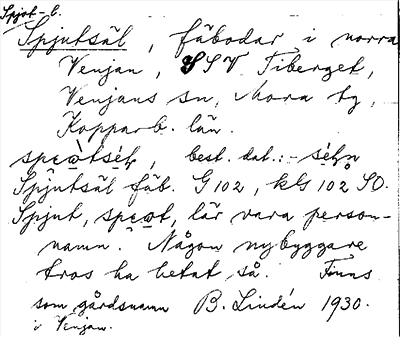 Spjut- b.
Spjutsäl, fäbodar i norra
Venjan, SSV Tiberget,
Venjans sn, Mora tg,
Kopparb. län.
best. dat.: -
Spjutsäl fäb. G 102, kG 102 SO.
Spjut, lär vara person-
namn. Någon nybyggare
tros ha hetat så. Finns
som gårdsnamn B. Lindén 1930.
i Venjan.